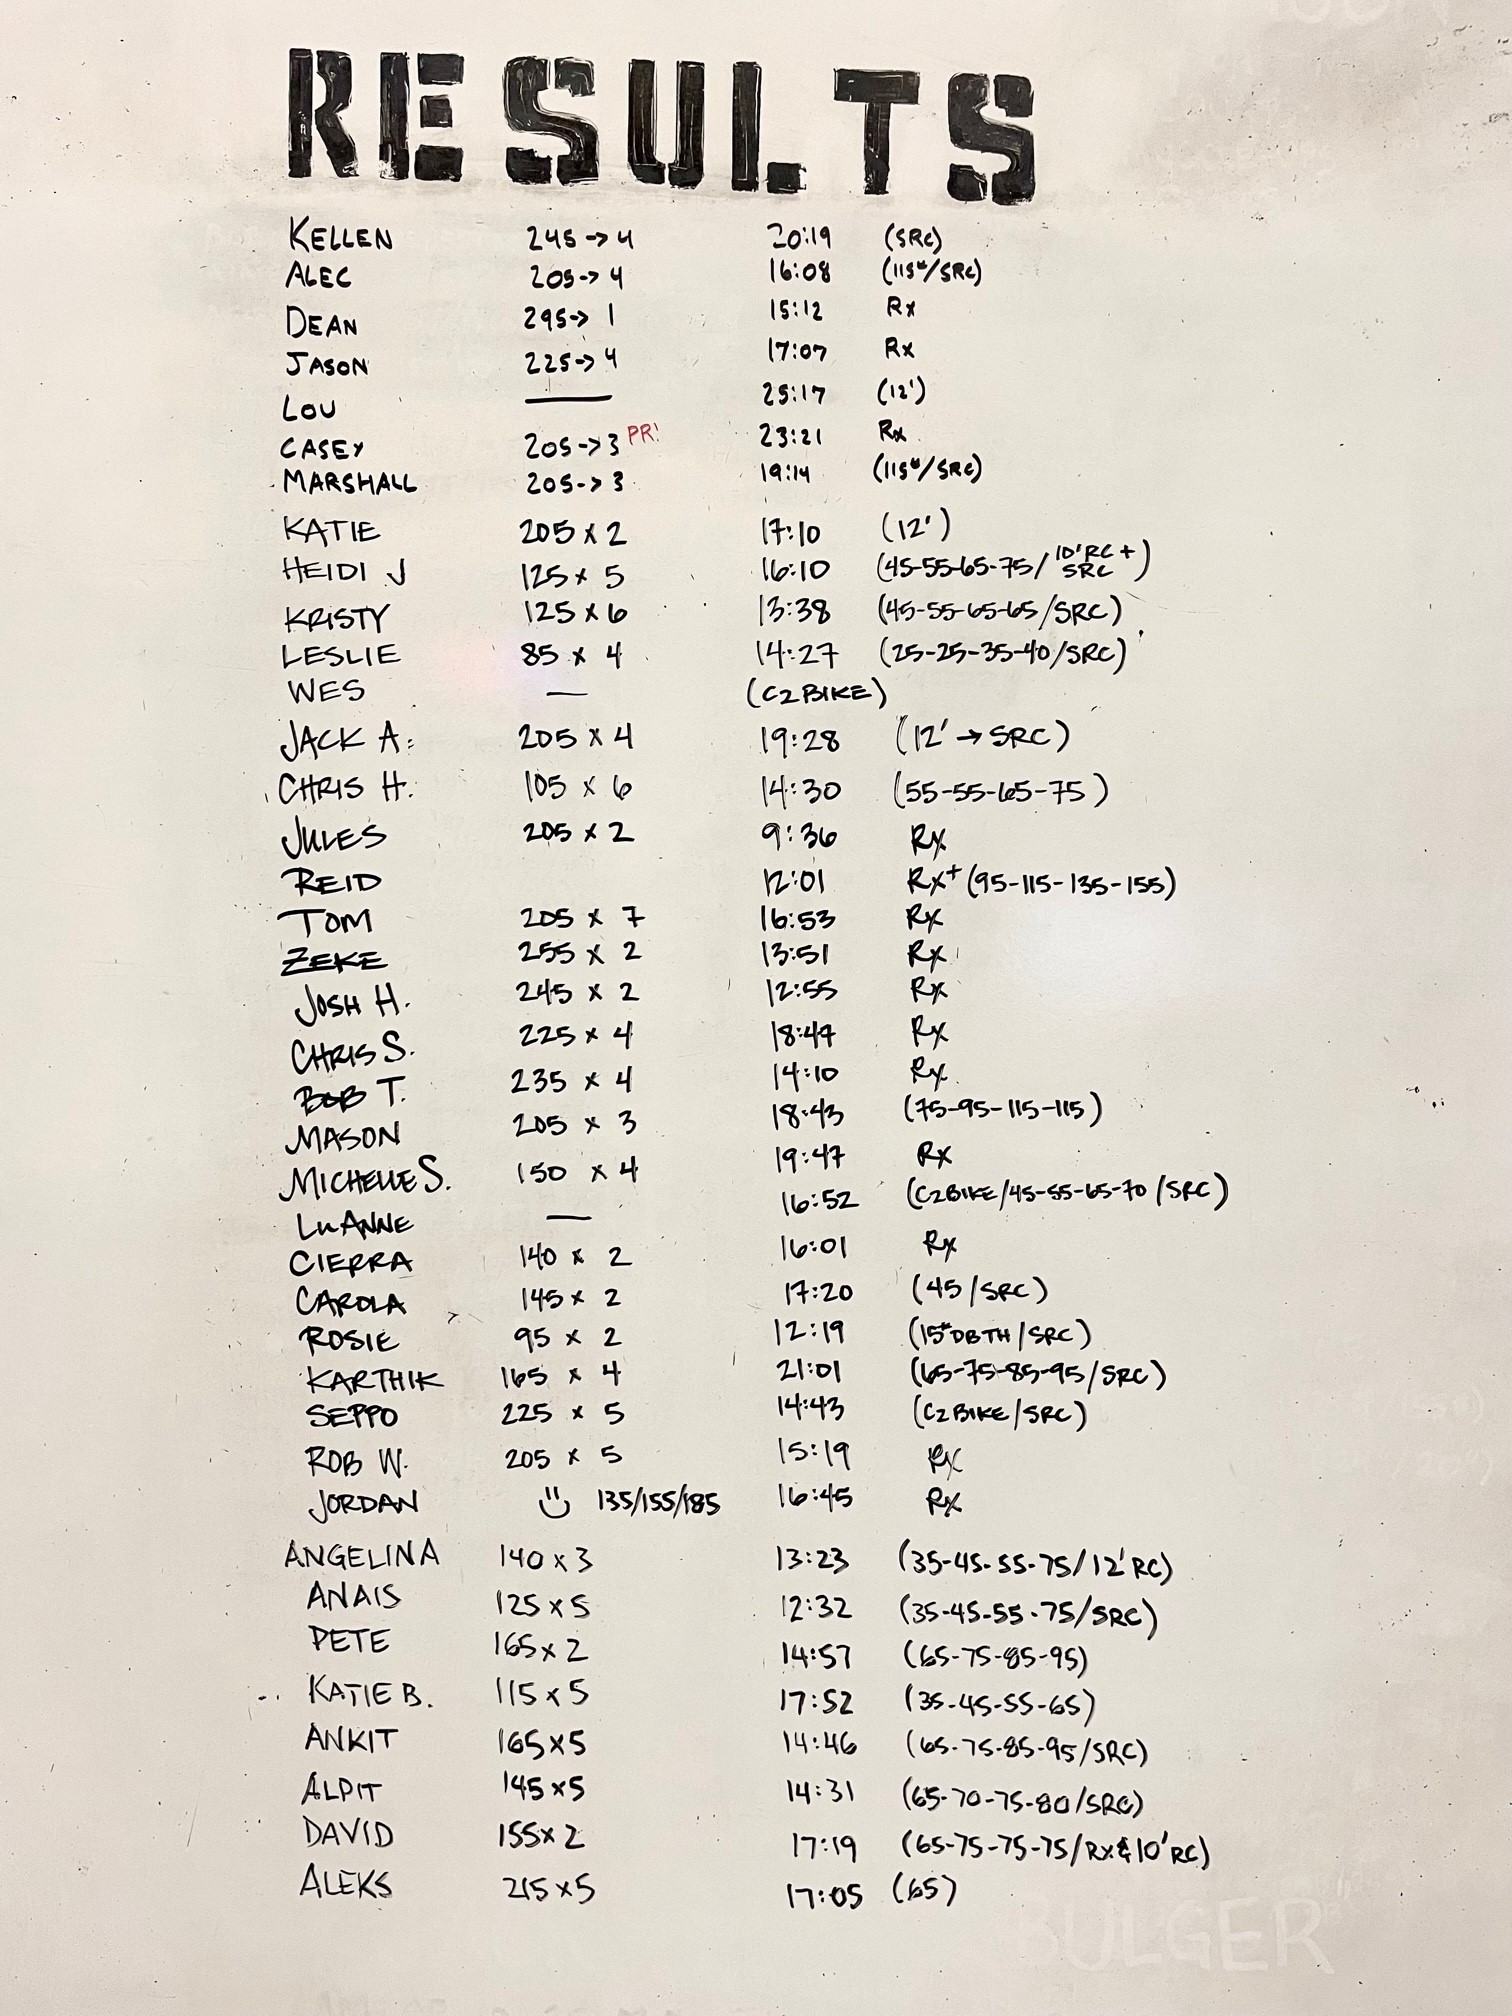 RESULTS
KELLEN 245->4 20:19 (SRC)
ALEC 205->4 16:08 (115#/SRC)
DEAN 295->1 15:12 Rx
JASON 225->4 17:07 Rx
LOU — 25:17 (12')
CASEY 205->3 PR! 23:21 Rx
MARSHALL 205->3 19:14 (115#/SRC)
KATIE 205 x 2 17:10 (12')
HEIDI J 125 x 5 16:10 (45-55-65-75/10'RC + SRC)
KRISTY 125 x 6 13:38 (45-55-65-65/SRC)
LESLIE 85 x 4 14:27 (25-25-35-40/SRC)
WES — (C2BIKE)
JACK A. 205 x 4 19:28 (12' → SRC)
CHRIS H. 105 x 6 14:30 (55-55-65-75)
JULES 205 x 2 9:36 Rx
REID 12:01 Rx+ (95-115-135-155)
TOM 205 x 7 16:53 Rx
ZEKE 255 x 2 13:51 Rx
JOSH H. 245 x 2 12:55 Rx
CHRIS S. 225 x 4 18:47 Rx
BOB T. 235 x 4 14:10 Rx
MASON 205 x 3 18:43 (75-95-115-115)
MICHELLE S. 150 x 4 19:47 Rx
LUANNE — 16:52 (C2BIKE/45-55-65-70/SRC)
CIERRA 140 x 2 16:01 Rx
CAROLA 145 x 2 17:20 (45/SRC)
ROSIE 95 x 2 12:19 (15#DBTH/SRC)
KARTHIK 165 x 4 21:01 (65-75-85-95/SRC)
SEPPO 225 x 5 14:43 (C2BIKE/SRC)
ROB W. 205 x 5 15:19 Rx
JORDAN 135/155/185 16:45 Rx
ANGELINA 140 x 3 13:23 (35-45-55-75/12'RC)
ANAIS 125 x 5 12:32 (35-45-55-75/SRC)
PETE 165 x 2 14:57 (65-75-85-95)
KATIE B. 115 x 5 17:52 (35-45-55-65)
ANKIT 165x5 14:46 (65-75-85-95/SRC)
ALPIT 145x5 14:31 (65-70-75-80/SRC)
DAVID 155x2 17:19 (65-75-75-75/Rx&10'RC)
ALEKS 215x5 17:05 (65)
BULGER